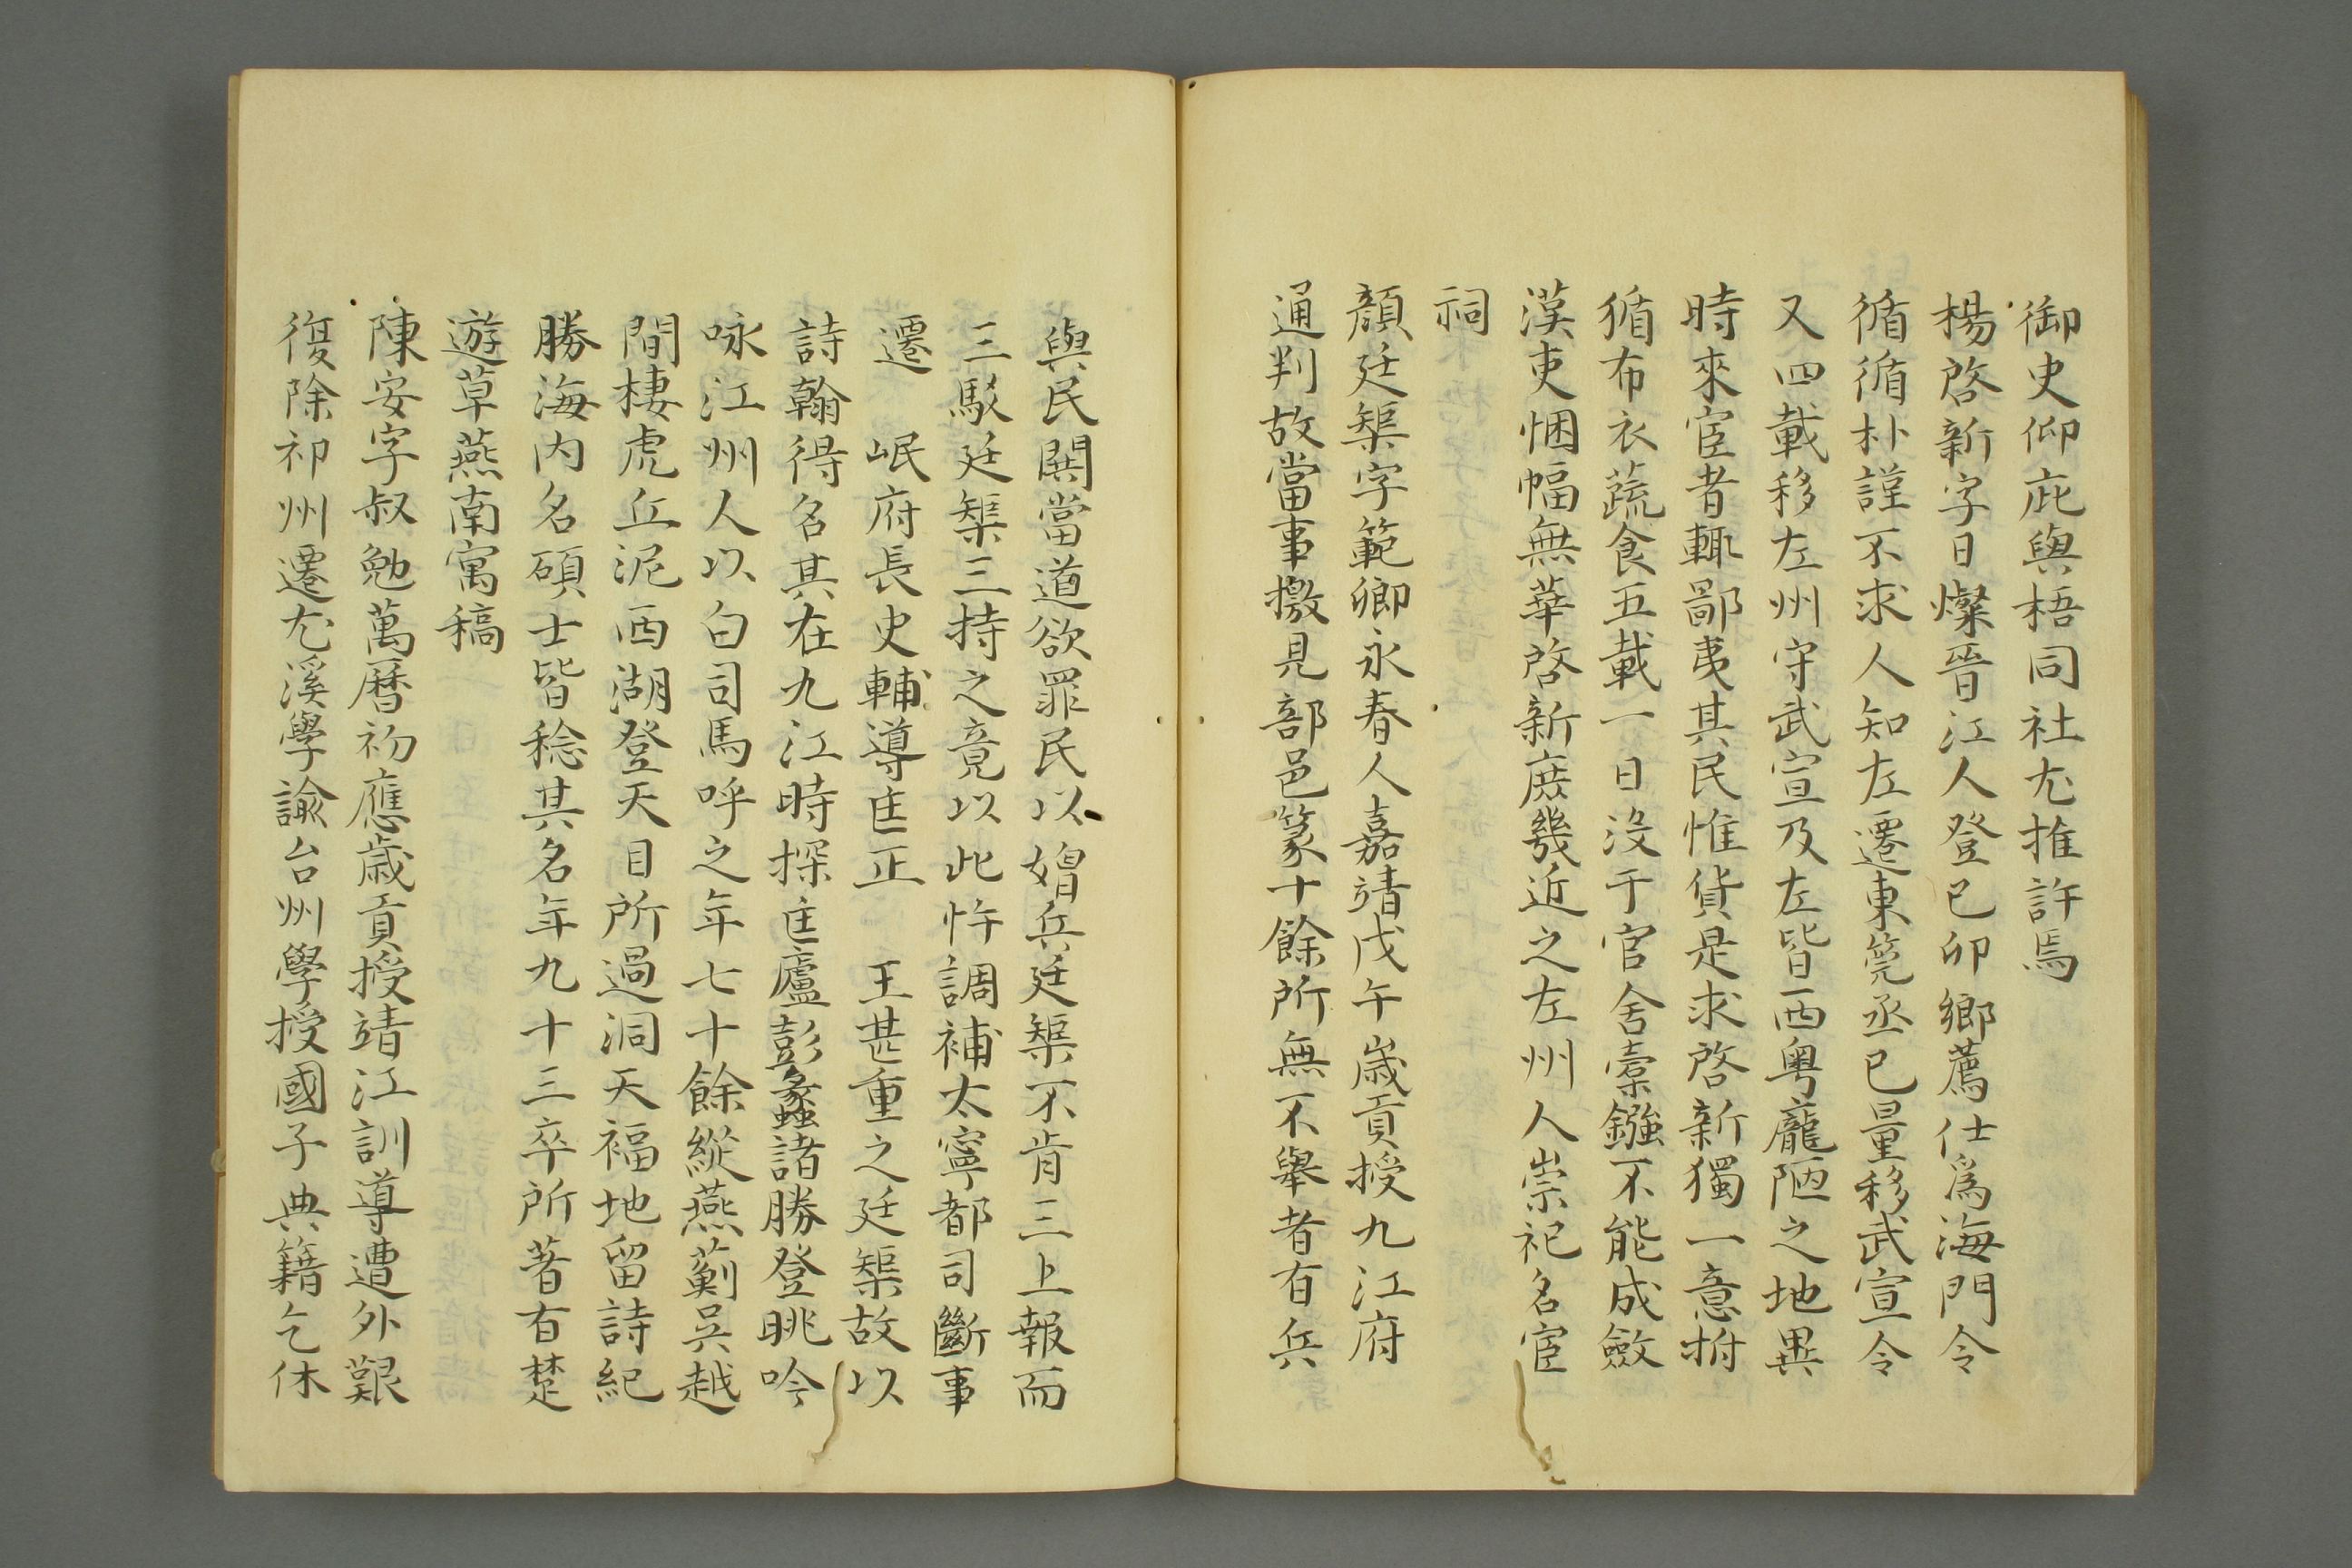 御史仰庇與梧同社尤推許焉
楊啓新字日燦晉江人登己卯鄉薦仕爲海門令
循循朴謹不求人知左遷東筦丞已量移武宣令
又四載移左州守武宣及左皆西粵龐陋之地異
時來宦者輒鄙夷其民惟貨是求啓新獨一意拊
循布衣蔬食五載一日沒于官舍橐鏹不能成斂
漢吏悃幅無華啓新庶幾近之左州人崇祀名宦
祠
顏廷榘字範卿永春人嘉靖戊午歲貢授九江府
通判故當事檄見部邑篆十餘所無不舉者有兵
與民鬨當道欲罪民以媢兵廷榘不肯三上報而
三駁廷榘三持之竟以此忤調補太寧都司斷事
遷 岷府長史輔導匡正 王甚重之廷榘故以
詩翰得名其在九江時探匡廬彭蠡諸勝登眺吟
咏江州人以白司馬呼之年七十餘縱燕薊吳越
間棲虎丘泥西湖登天目所過洞天福地留詩紀
勝海内名碩士皆稔其名年九十三卒所著有楚
遊草燕南寓稿
陳安字叔勉萬曆初應歲貢授靖江訓導遭外艱
復除祁州遷尤溪學諭台州學授國子典籍乞休